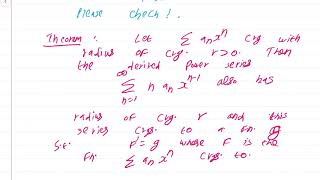 Please check!.
Theorem: Let Σ aₙxⁿ Cvg. with
radius of Cvg. r>0. Then
the derived power series
∞
Σ n aₙ xⁿ⁻¹ also has
n=1
radius of Cvg. r and this
series Cvgs. to a fn. g
s.t. F'=g where F is the
fn. Σ aₙxⁿ Cvgs to.